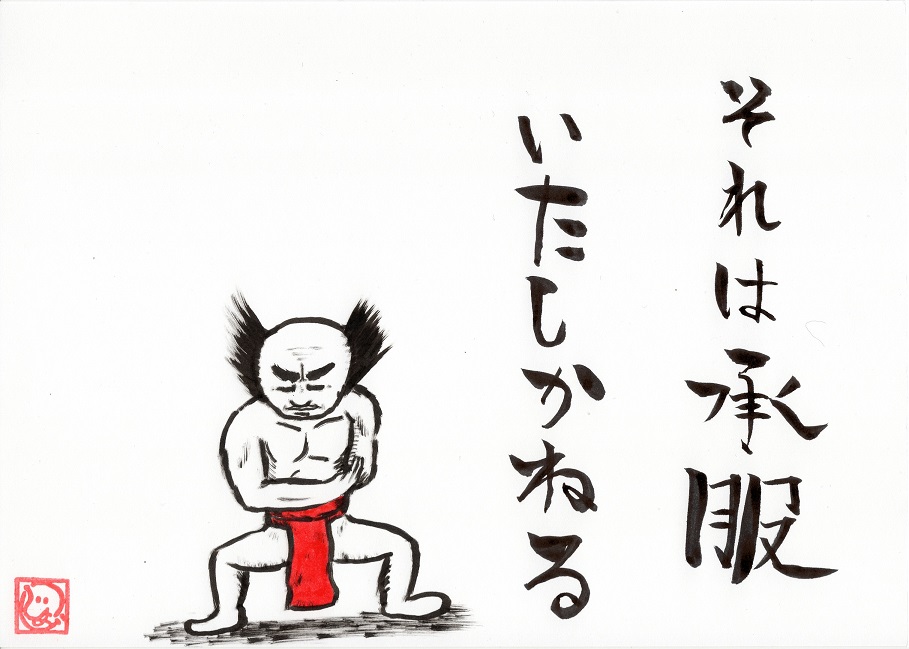 それは承服
いたしかねる